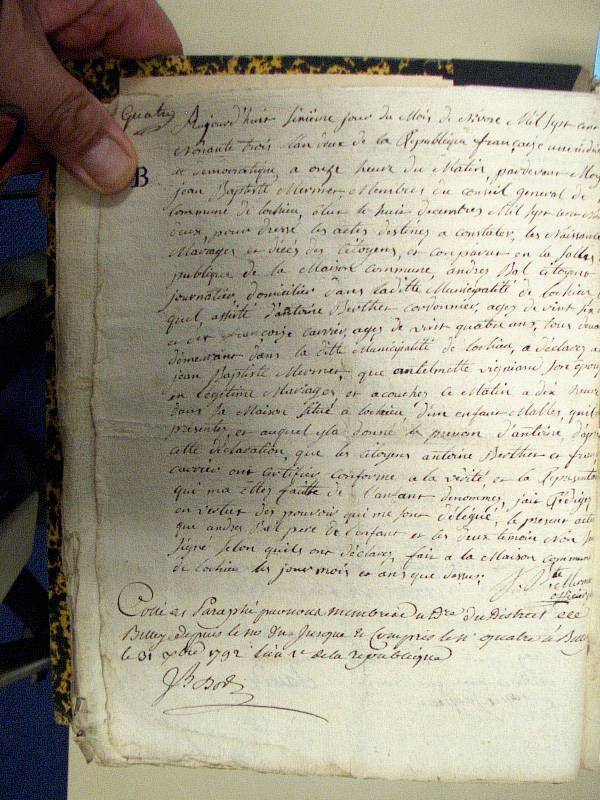 Quatre
Aujourd'huit sixième jour du Mois de Mil Sept Cent
Nonante trois l'an deux de la République française une indivi
et democratique, a onze heure du Matin, pardevent Moy
jean Baptiste Mermet Membres du Conseil general de
Commune de lochieu, élut le huit decembres Mil Sept Cent No
deux, pour dresse les actes destines a constater, les Naissance
Mariages et décés des Citoyens, et comparut en la Salles
publique de la Maison Commune, andres Bal Citoyent
journalier, domicilier dans laditte Municipalité de lochieu,
quel, assisté d'antoine Berthet Cordonnier, ages de vint six
et de françoise Carrier, ages de vint quatre ans, tous deux
démeurant dans la ditte Municipalité de lochieu, a déclarez a
jean Baptiste Mermet, que antelmette son épou
en legitime Mariages et acouchez ce Matin a dix heure
dans Sa Maison Situé a lochieu d'un enfant Malles, quil
presentes, et auquel yla donné le prenom d'antoine, d'apr
cette déclaration, que les citoyens antoine Berthet et fran
Carrier ont Certifier Conforme a la vérité, et la Representa
qui ma ettes faitte de l'enfant denommes, jait Rédiges
en vertut des pouvoir qui me sont déléqué, le present acte
que andres Bal pere de l'enfant et les deux temoin Non
Signe Selon quils ont déclares, fait a la Maison Commune
de lochieu les jour mois et ans que dessus.
J. Bte Mermet
officier
Cotté et Paraphé par nous membre du Dre du District de
Belley depuis le no. Un Jusque et Compris le no quatre à Belley
le 31 Xbre 1792 l'an 1er de la république